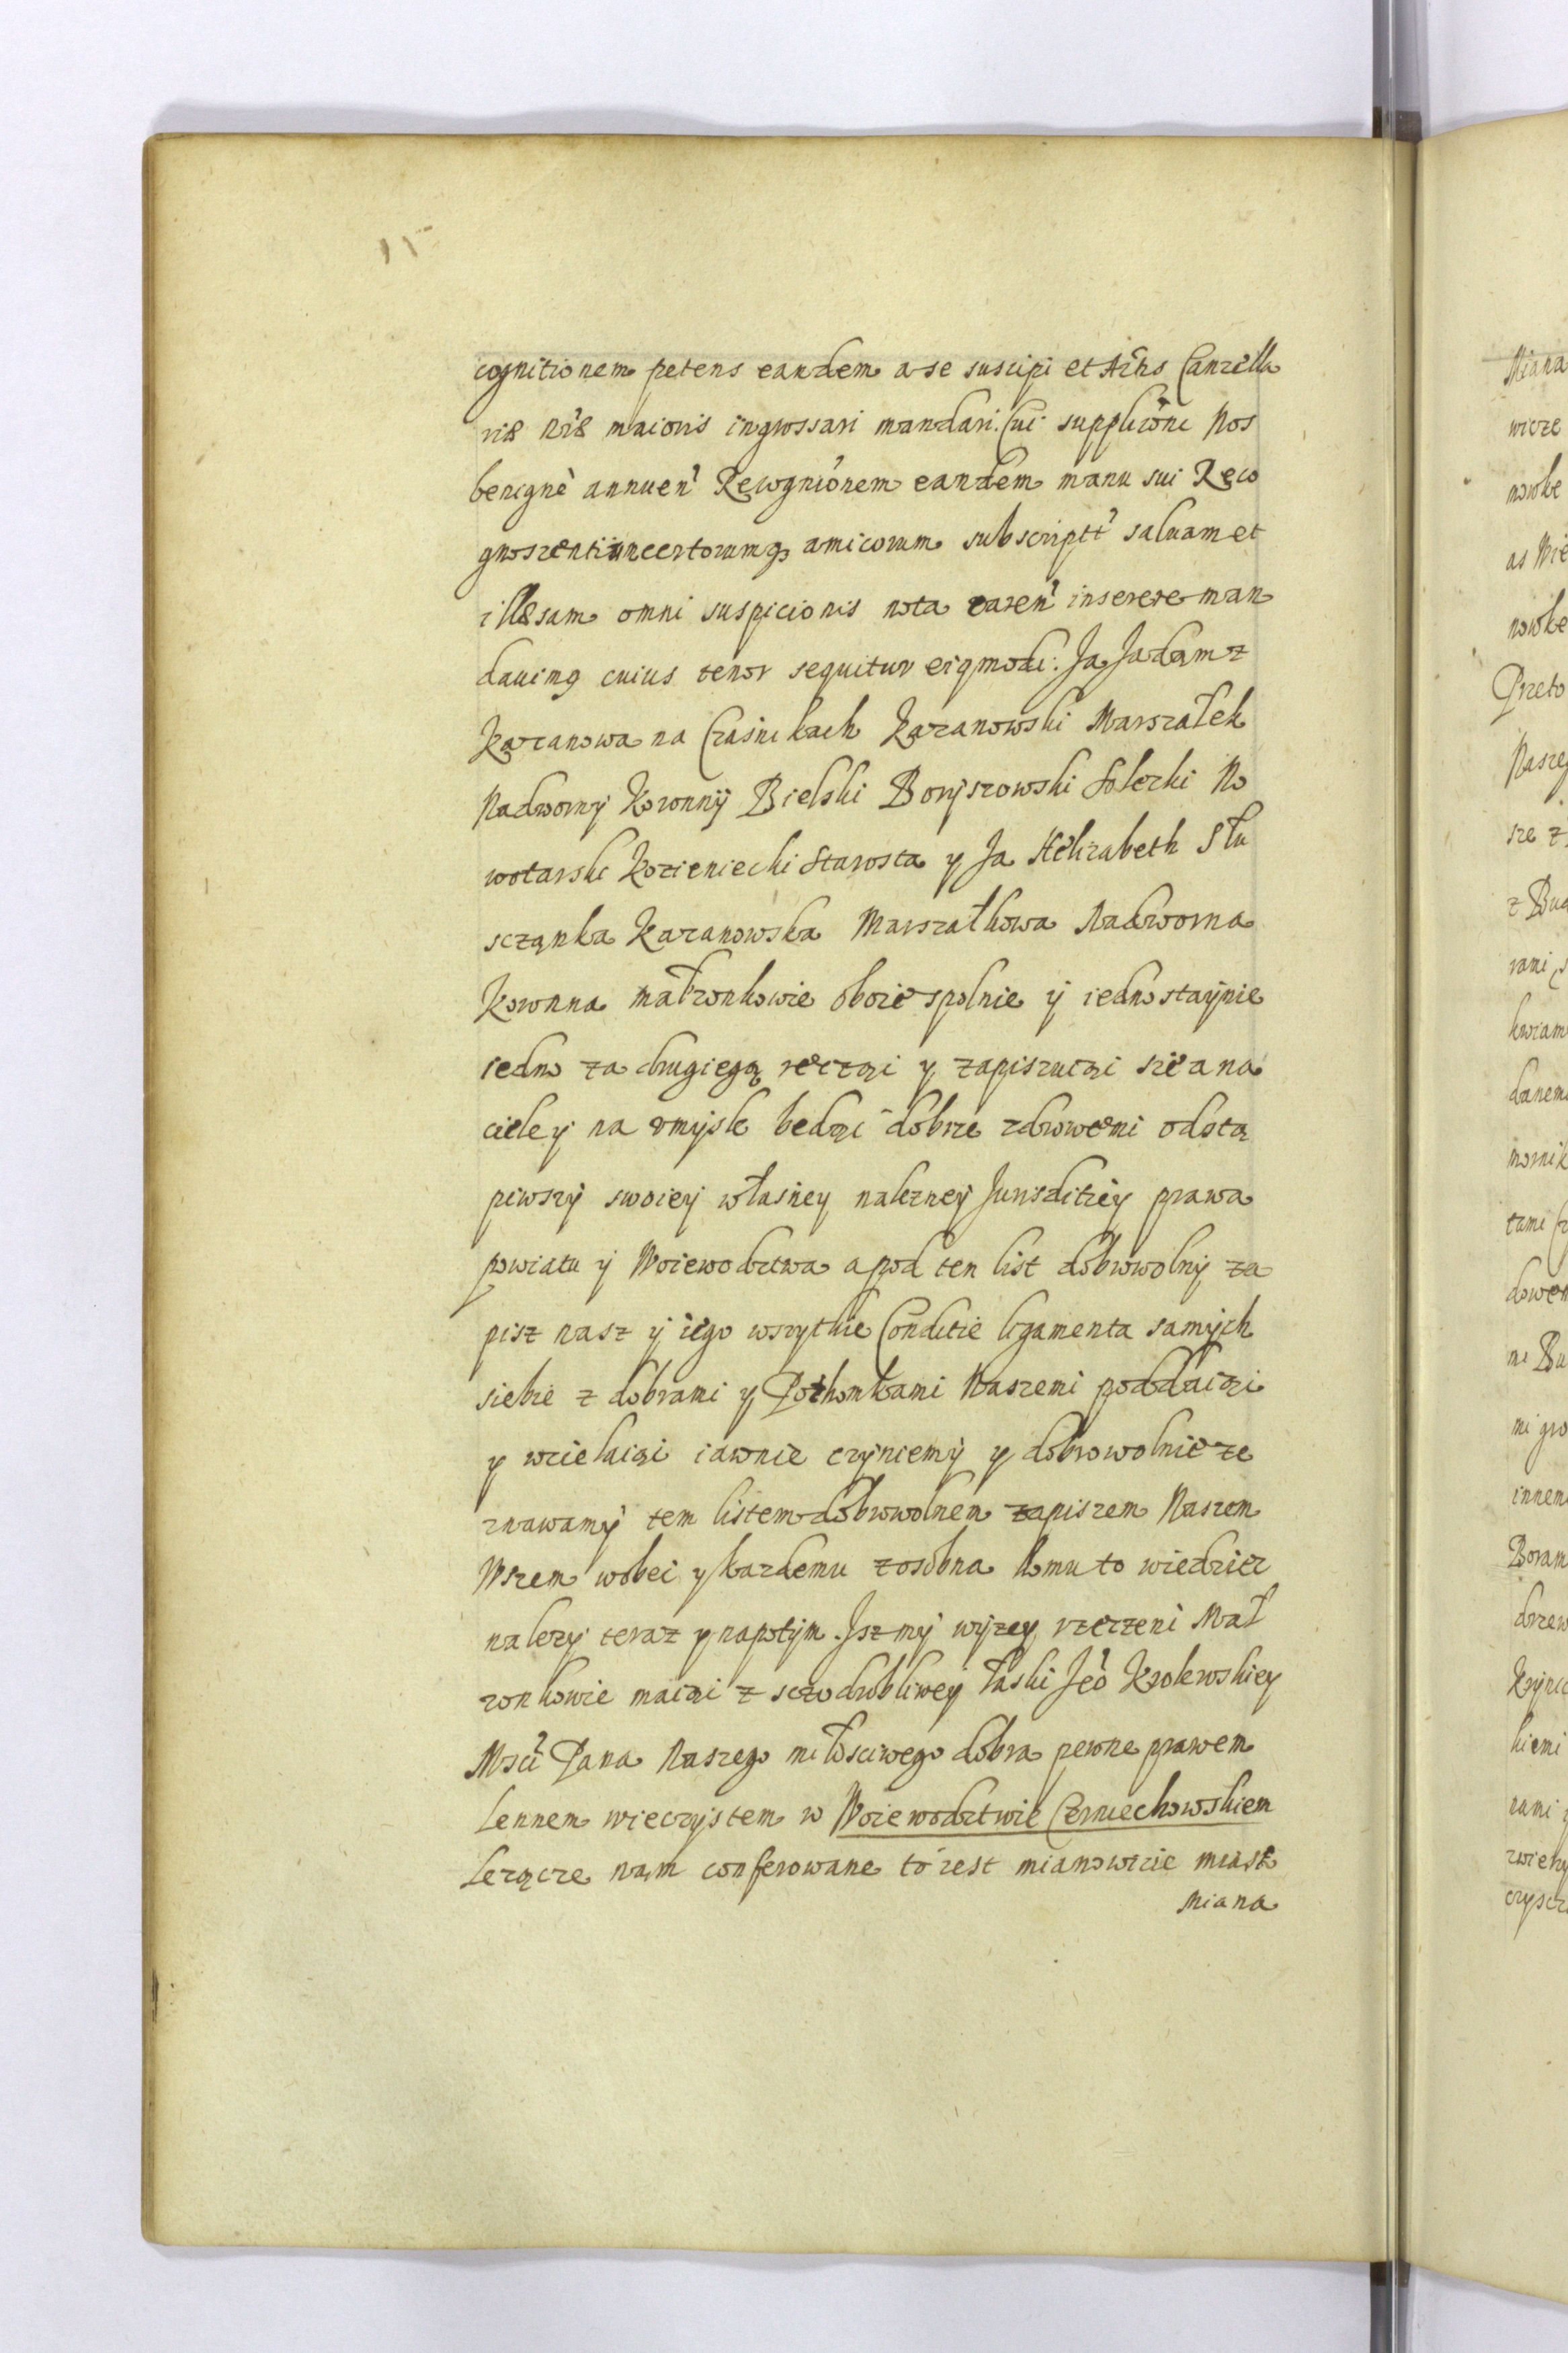 15
cognitionem petens eandem a se suscipi et Actis Canzella
riæ nræ maioris ingrossari mandari. Cui supplicōni Nos
benignè annuen Recognitionem eandem manu sui Reco
gnoszenti amicorum subscript saluam et
illæsam omni suspicionis nota caren inserere man
dauimq cuius tenor sequitur eiqmodi. Ja Jadam z
Kazanowa na Crasnikach Kazanowski Marszałek
Nadworny Koronny Bielski Boryszowski Solecki No
wotarski Kozieniecki Starosta y Ja Helizabeth Słu
sczanka Kazanowska Marszałkowa Nadworna
Koronna małzonkowie oboie spolnie y iednostaynie
iedno za drugiego ręcząci y zapiszuiąci się a na
ciele y na vmysle bedąci dobrze zdrowemi odstą
piwszy swoiey własney nalezney Jurisditiey prawa
powiatu y Woiewodztwa a pod ten list dobrowolny za
pisz nasz y iego wszytkie Conditie ligamenta samych
siebie z dobrami y Pothomkami Naszemi poddaiąci
y wcielaiąci iawnie czyniemy y dobrowolnie ze
znawamy tem listem dobrowolnem zapiszem Naszem
Wszem wobec y kazdemu zosobna komu to wiedziec
nalezy teraz y napotym. Jsz my wyzey rzeczeni Mał
zonkowie maiąci z sczodrobliwey łaski Jeo Krolewskiey
Msci Pana Naszego miłosciwego dobra pewne prawem
Lennem wieczystem w Woiewodztwie Czerniechowskiem
Lezącze nam conferowane to iest mianowicie miast
Miana
Miana
wicze
nowke
as Wie
nowke
Przeto
Naszey
sze z
z Bug
rami
kwiam
danem
mornik
tami
dowem
mi Bu
mi gro
innem
Boram
drzew
Krynic
kiemi
nami
zwierz
czyscz